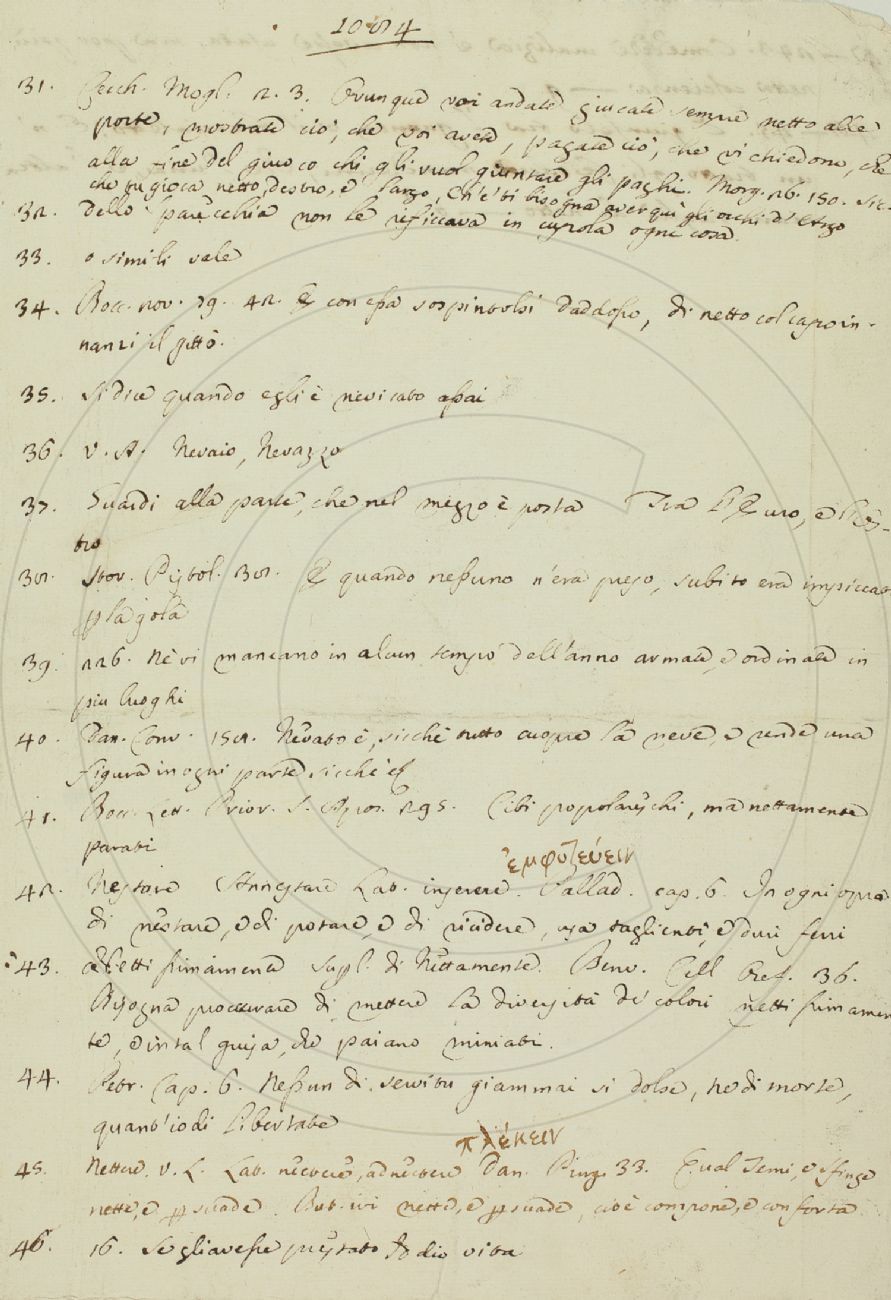 1084
31. Cecch. Mogl. 2. 3. Ovunque voi andate giucate sempre netto alle
porte, mostrate ciò, che voi avete, pagate ciò, che vi chiedono, che
alla fine del giuoco chi gli vuol giuntare gli paghi. Morg. 26. 150.
che tu gioca netto, destro, e largo, Ch'e' ti bisogna aver quì gli occhi d'Argo
32. dello parecchia non le ficcava in cupola ogni cosa.
33. o simili vale
34. Bocc. nov. 79. 42. E con essa sospintolsi daddosso, di netto col capo in-
nanzi il gittò.
35. si dice quando egli è nevicato assai
36. V. A. Nevaio, Nevazzo
37. Guardi alla parte, che nel mezzo è posta Tra l'Euro, e
38. Stor. Pistol. 38. E quando nessuno n'era preso, subito era impiccato
p la gola
39. 226. Nè vi mancano in alcun tempo dell'anno armate, e ordinate in
più luoghi
40. Dan. Conv. 152. Nevato è, sicchè tutto cuopre la neve, e rende una
figura in ogni parte, sicchè
41. Bocc. Lett. Prior. S. Apos. 295. Cibi popolareschi, ma nettamente
parati
ἐμφυτεύειν
42. Nestare Annestare Lat. inserere. Pallad. cap. 6. In ogni opra
di nestare, e di potare, e di ricidere, usa taglienti, e duri ferri
43. Nettissimamente supl. di Nettamente. Benv. Cell. Oref. 36.
Bisogna proccurare di mettere la diversità de' colori nettissimamen
te, e in tal guisa, che paiano miniati.
44. Petr. Cap. 6. Nessun di servitù giammai si dolse, Nè di morte,
quant'io di libertate
πλέκειν
45. Nettere. V. L. Lat. nectere, adnectere Dan. Purg. 33. Qual Temi, e Sfinge
nette, e psuade. But. ivi nette, e psuade, cioè compone, e conforta
46. 16. Se gli avesse prestato Iddio vita